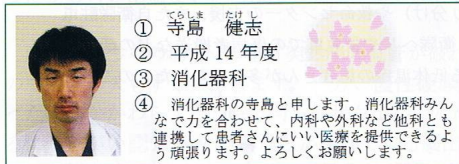 てらしま たけし
① 寺島 健志
② 平成 14 年度
③ 消化器科
④ 消化器科の寺島と申します。消化器科みん
なで力を合わせて、内科や外科など他科とも
連携して患者さんにいい医療を提供できるよ
う頑張ります。よろしくお願いします。